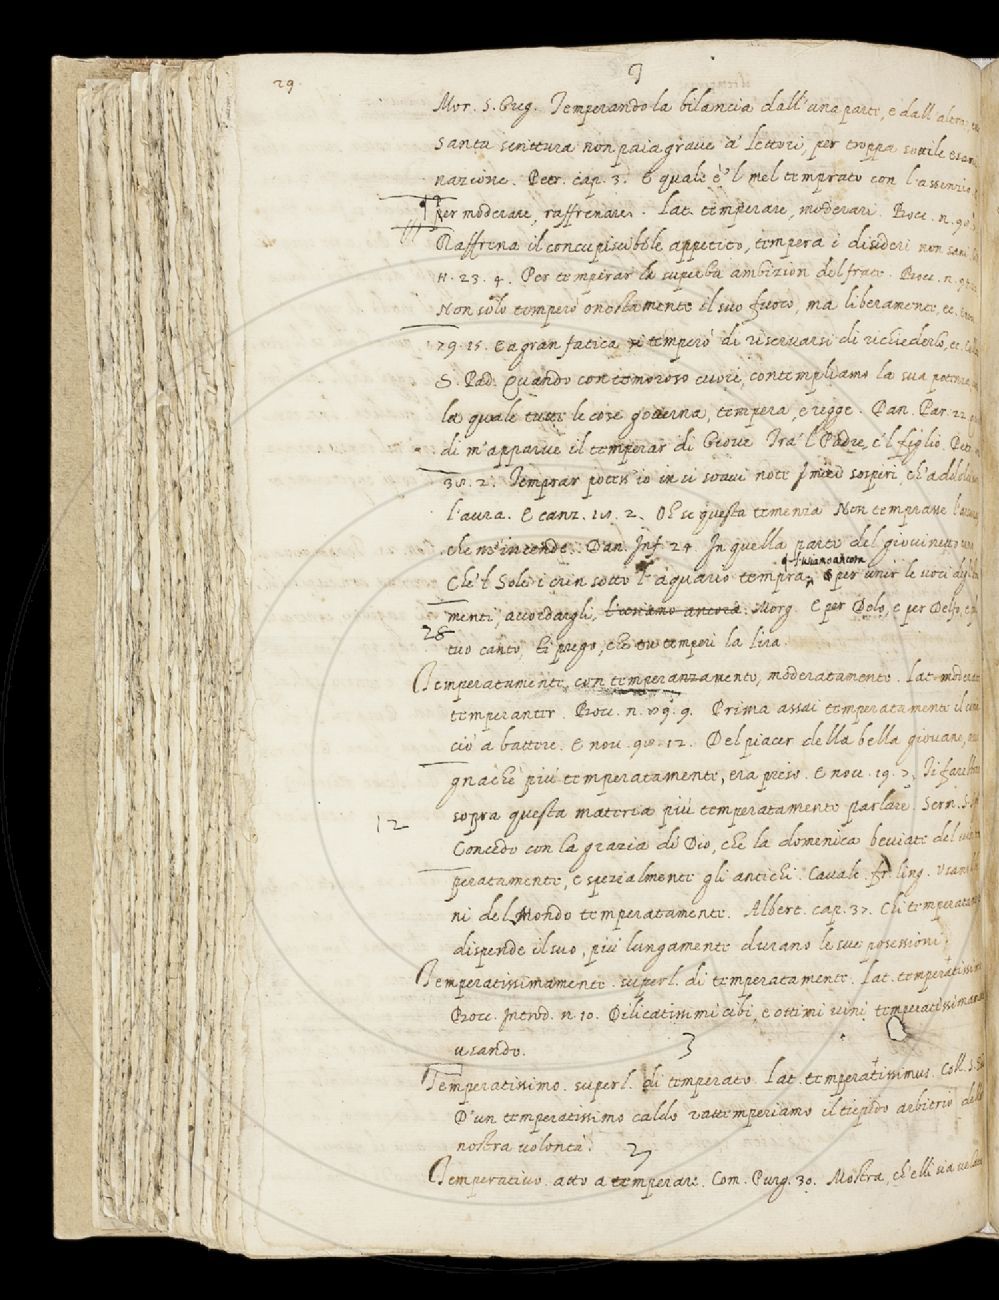 29
Mor. S. Greg. Temperando la bilancia dall'una parte, e dall altra,
santa scrittura non paia grave a' lettori, per troppa sottile esami
nazione. Petr. cap. 3. E quale è 'l mel temprato con l'assenzio
per moderare, raffrenare. Lat. temperare, moderari. Bocc. n. 98.
Raffrena il concupiscibile appetito, tempera i disideri non sani
n. 23. 4. Per temperar la superba ambizion del frate. Bocc. n.
Non solo temperò onestamente il suo fuoco, ma liberamente, ec.
79. 15. E a gran fatica si temperò di riservarsi di richiederlo, ec.
S. Pad. Quando con temoroso cuore, contempliamo la sua potenza
la quale tutte le cose governa, tempera, e regge. Dan. Par. 22.
di m'apparve il temperar di Giove Tra 'l Padre, e 'l figlio. Petr.
2. Temprar potess' io in sì soavi note I miei sospiri, ch'addolcis
l'aura. E canz. 2. O se questa temenza Non temprasse l'arsura
che m'incende. Dan. Inf. 24. In quella parte del giovinetto
tusiamo ancora
Che 'l Sole i crin sotto l'aquario tempra, per unir le voci
menti, accordargli, Morg. E per Delo, e per Delfo, e
28
tuo canto, ti prego, che tu temperi la lira.
Temperatamente, con temperanzamento, moderatamente. Lat. moderate
temperanter. Bocc. n. 9. Prima assai temperatamente il
ciò a battere. E nov. 12. Del piacer della bella giovane,
gnachè più temperatamente, era preso. E nov. 19. 7. Ti farebbe
12
sopra questa materia più temperatamente parlare. Serm. S.
Concedo con la grazia di Dio, che la domenica beviate del
peratamente, e spezialmente gli antichi. Cavalc. fr. ling. Usan
ni del Mondo temperatamente. Albert. cap. 37. Chi temperatamen
dispende il suo, più lungamente durano le sue posessioni.
Temperatissimamente. superl. di temperatamente. Lat. temperatissim
Bocc. Introd. n. 10. Dilicatissimi cibi, e ottimi vini temperatissimam
usando.
3
Temperatissimo. superl. di temperato. Lat. temperatissimus. Coll. S.
D'un temperatissimo caldo rattemperiamo il tiepido arbitrio della
nostra volontà.
Temperativo. atto a temperare. Com. Purg. 30. Mostra, ch'elli sia